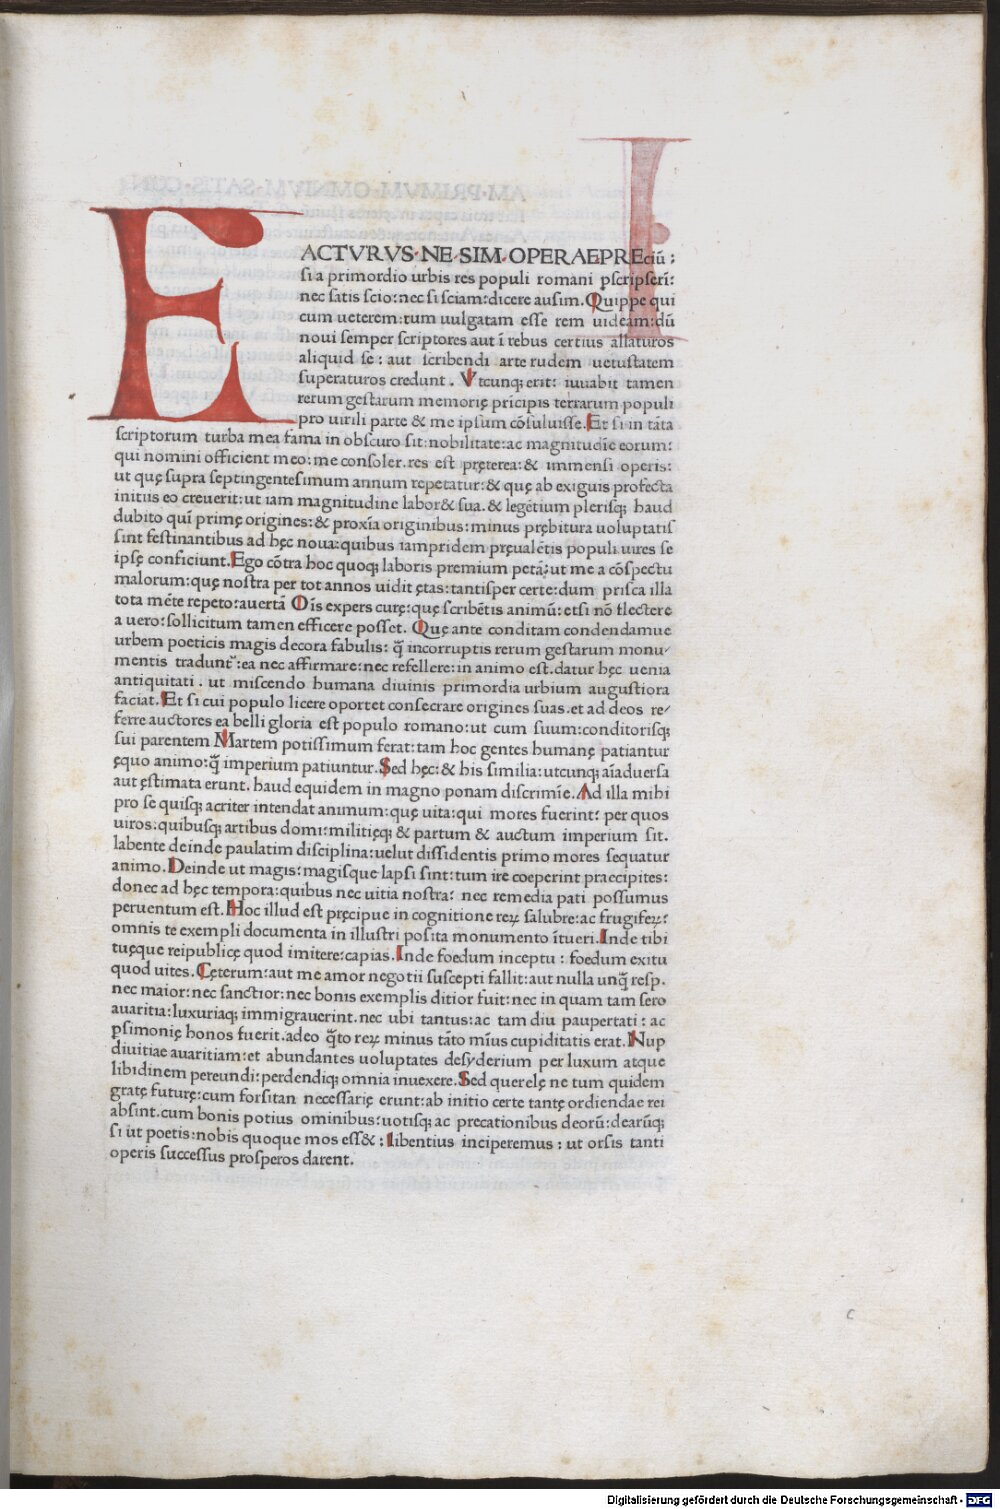 FACTVRVS·NE·SIM·OPERAEPREciũ:
si a primordio urbis res populi romani ꝑscripseri:
nec satis scio: nec si sciam: dicere ausim. Quippe qui
cum ueterem: tum uulgatam esse rem uideam: dũ
noui semper scriptores aut ĩ rebus certius allaturos
aliquid se: aut scribendi arte rudem uetustatem
superaturos credunt. Vtcunq; erit: iuuabit tamen
rerum gestarum memorię prĩcipis terrarum populi
pro uirili parte & me ipsum cõsuluisse. Et si in tãta
scriptorum turba mea fama in obscuro sit: nobilitate: ac magnitudĩe eorum:
qui nomini officient meo: me consoler. res est pręterea: & immensi operis:
ut quę supra septingentesimum annum repetatur: & quę ab exiguis profecta
initiis eo creuerit: ut iam magnitudine labor& sua. & legẽtium plerisq; haud
dubito quĩ primę origines: & proxĩa originibus: minus prębitura uoluptatis
sint festinantibus ad hęc noua: quibus iampridem pręualẽtis populi uires se
ipsę conficiunt. Ego cõtra hoc quoq; laboris premium petã: ut me a cõspectu
malorum: quę nostra per tot annos uidit ętas: tantisper certe: dum prisca illa
tota mẽte repeto: auertã Oĩs expers curę: quę scribẽtis animũ: etsi nõ flectere
a uero: sollicitum tamen efficere posset. Quę ante conditam condendamue
urbem poeticis magis decora fabulis: q̃ incorruptis rerum gestarum monu⸗
mentis tradunt᷑: ea nec affirmare: nec refellere: in animo est. datur hęc uenia
antiquitati. ut miscendo humana diuinis primordia urbium augustiora
faciat. Et si cui populo licere oportet consecrare origines suas. et ad deos re⸗
ferre auctores ea belli gloria est populo romano: ut cum suum: conditorisq;
sui parentem Martem potissimum ferat: tam hoc gentes humanę patiantur
ęquo animo: q̃ imperium patiuntur. Sed hęc: & his similia: utcunq; aĩaduersa
aut ęstimata erunt. haud equidem in magno ponam discrimĩe. Ad illa mihi
pro se quisq; acriter intendat animum: quę uita: qui mores fuerint: per quos
uiros: quibusq; artibus domi: militięq; & partum & auctum imperium sit.
labente deinde paulatim disciplina: uelut dissidentis primo mores sequatur
animo. Deinde ut magis: magisque lapsi sint: tum ire coeperint praecipites:
donec ad hęc tempora: quibus nec uitia nostra: nec remedia pati possumus
peruentum est. Hoc illud est pręcipue in cognitione reꝝ salubre: ac frugifeꝝ:
omnis te exempli documenta in illustri posita monumento ĩtueri. Inde tibi
tuęque reipublicę quod imitere: capias. Inde foedum inceptu: foedum exitu
quod uites. Cęterum: aut me amor negotii suscepti fallit: aut nulla unq̃ resp.
nec maior: nec sanctior: nec bonis exemplis ditior fuit: nec in quam tam sero
auaritia: luxuriaq; immigrauerint. nec ubi tantus: ac tam diu paupertati: ac
ꝑsimonię honos fuerit. adeo q̃to reꝝ minus tãto mĩus cupiditatis erat. Nup
diuitiae auaritiam: et abundantes uoluptates desyderium per luxum atque
libidinem pereundi: perdendiq; omnia inuexere. Sed querelę ne tum quidem
gratę futurę: cum forsitan necessarię erunt: ab initio certe tantę ordiendae rei
absint. cum bonis potius ominibus: uotisq; ac precationibus deorũ: dearũq;
si ut poetis: nobis quoque mos ess&: libentius inciperemus: ut orsis tanti
operis successus prosperos darent.
Digitalisierung gefördert durch die Deutsche Forschungsgemeinschaft - DFG